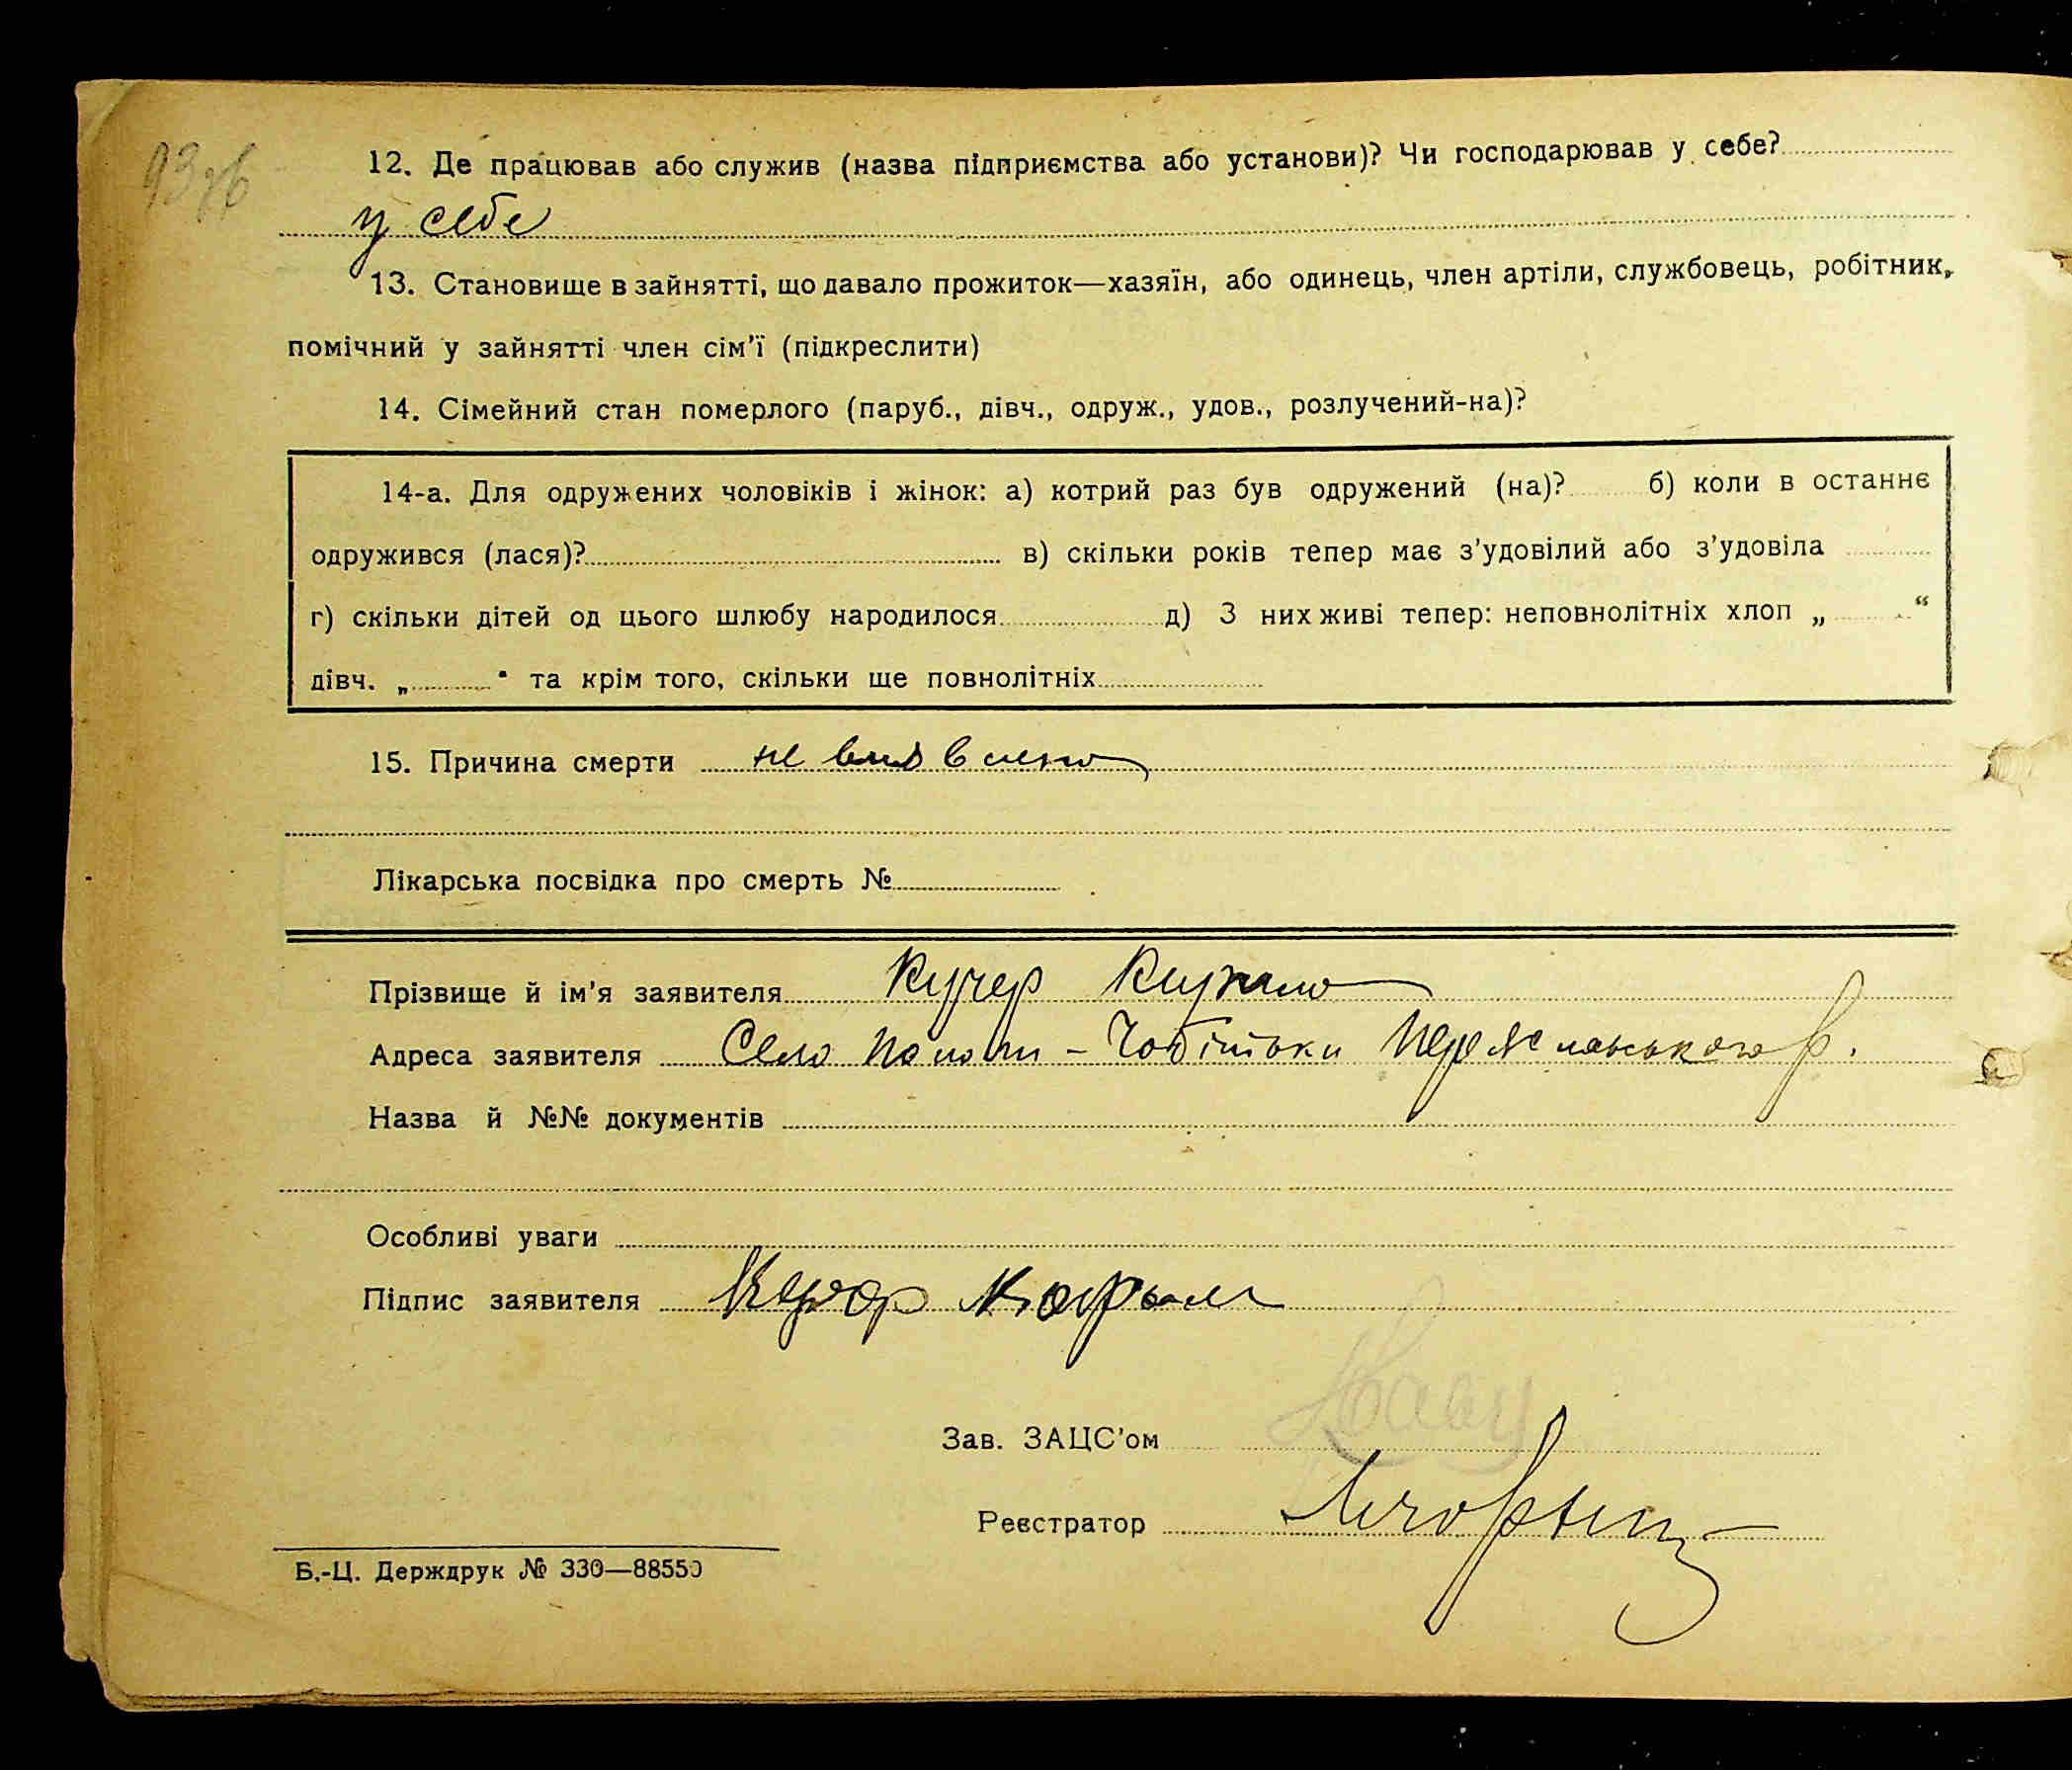 93зв
12. Де працював або служив (назва підприємства або установи)? Чи господарював у себе?
у себе
13. Становище в зайнятті, що давало прожиток—хазяїн, або одинець, член артіли, службовець, робітник,
помічний у зайнятті член сім'ї (підкреслити)
14. Сімейний стан померлого (паруб., дівч., одруж., удов., розлучений-на)?
14-а. Для одружених чоловіків і жінок: а) котрий раз був одружений (на)? б) коли в останнє
одружився (лася)? в) скільки років тепер має з'удовілий або з'удовіла
г) скільки дітей од цього шлюбу народилося д) З них живі тепер: неповнолітніх хлоп „ “
дівч. „ “ та крім того, скільки ще повнолітніх
15. Причина смерти не виявлено
Лікарська посвідка про смерть №
Прізвище й ім'я заявителя Кучер
Адреса заявителя Село - Чобітьки р.
Назва й №№ документів
Особливі уваги
Підпис заявителя Кучер
Зав. ЗАЦС'ом
Реєстратор
Б.-Ц. Держдрук № 330—88550